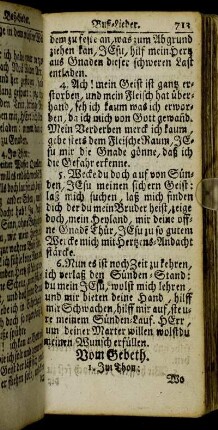 Buß-Lieder. 713
dem zu feste an, was zum Abgrund
ziehen kan, JEsu, hilf mein Hertz
aus Gnaden dieser schweren Last
entladen.
4. Ach! mein Geist ist gantz er-
storben, und mein Fleisch hat über-
hand, seh ich kaum was ich erwor-
ben, da ich mich von Gott gewand.
Mein Verderben merck ich kaum,
gebe stets dem Fleische Raum, JE-
su mir die Gnade gönne, daß ich
die Gefahr erkenne.
5. Wecke du doch auf von Sün-
den, JEsu meinen sichern Geist:
laß mich suchen, laß mich finden
dich der du mein Bruder heist, zeige
doch, mein Heyland, mir deine off-
ne Gnaden-Thür, JEsu zu so gutem
Wercke mich mit Hertzens-Andacht
stärcke.
6. Nun es ist noch Zeit zu kehren,
ich verlaß den Sünden-Stand:
du mein JEsu, wolst mich lehren
und mir bieten deine Hand, hilff
mir Schwachen, hilff mir auf, steu-
re meinem Sünden-Lauf. HErr,
um deiner Marter willen wolst du
meinen Wunsch erfüllen.
Vom Gebeth.
1. Im Thon:
Wo